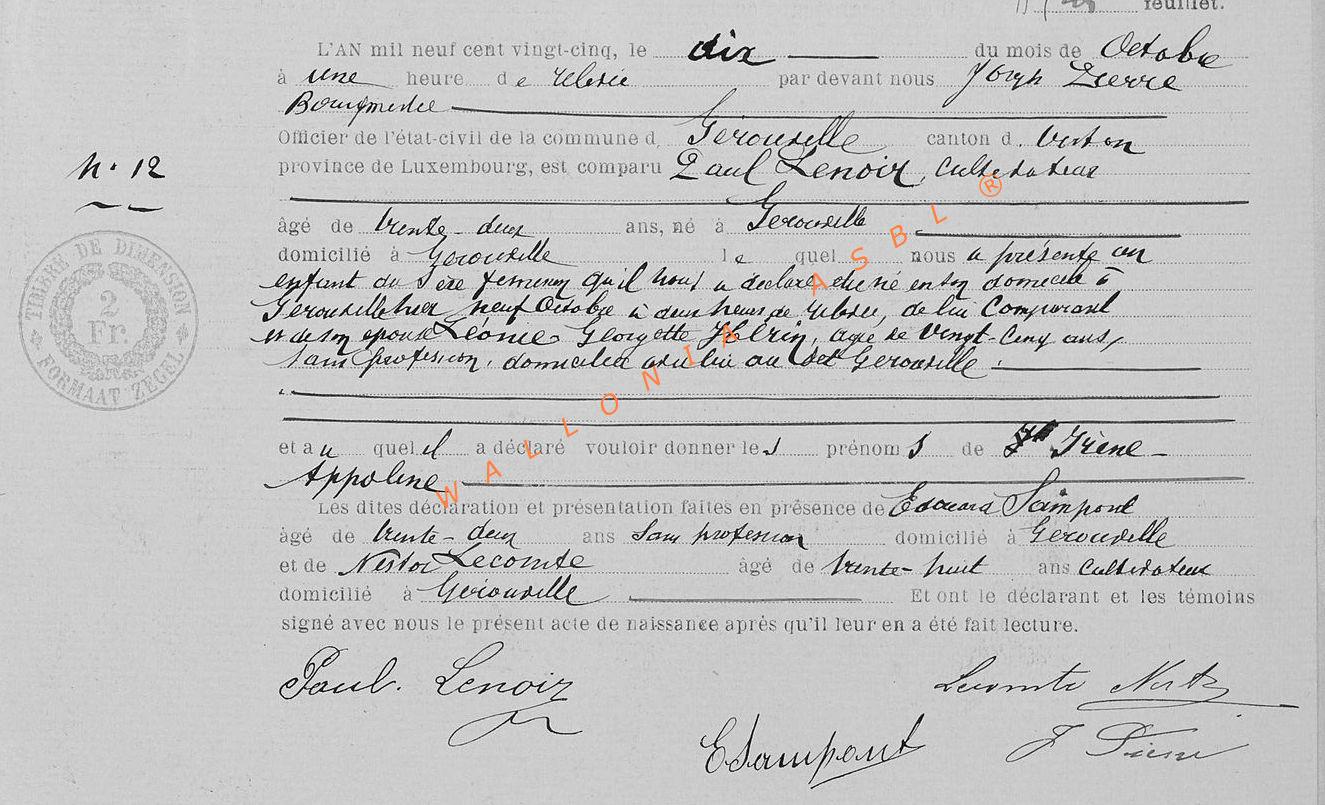 feuillet.
L'AN mil neuf cent vingt-cinq, le dix du mois de Octobre
à une heure de relevée par devant nous Joseph Pierre
Bourgmestre
Officier de l'état-civil de la commune d Gérouville canton d. Virton
N° 12
province de Luxembourg, est comparu Paul Lenoir, cultivateur
âgé de trente-deux ans, né à Gerouville
domicilié à Gerouville le quel nous a présenté un
enfant du sexe feminin qu'il nous a déclaré être né en son domicile à
Gerouville hier neuf Octobre à deux heures de relevée, de lui Comparant
et de son epouse Léonie Georgette Hérin, agée de Vingt-Cinq ans,
sans profession, domiciliée avec lui au dit Gerouville.
et au quel il a déclaré vouloir donner les prénoms de Irène
Appoline
Les dites déclaration et présentation faites en présence de Edouard Sampont
âgé de trente-deux ans Sans profession domicilié à Gerouville
et de Nestor Lecomte âgé de trente-huit ans cultivateur
domicilié à Gérouville Et ont le déclarant et les témoins
signé avec nous le présent acte de naissance après qu'il leur en a été fait lecture.
Paul. Lenoir
Lecomte Nestor
E Sampont
J Pierre
TIMBRE DE DIMENSION
2
Fr.
FORMAAT ZEGEL
WALLONIA ASBL ®